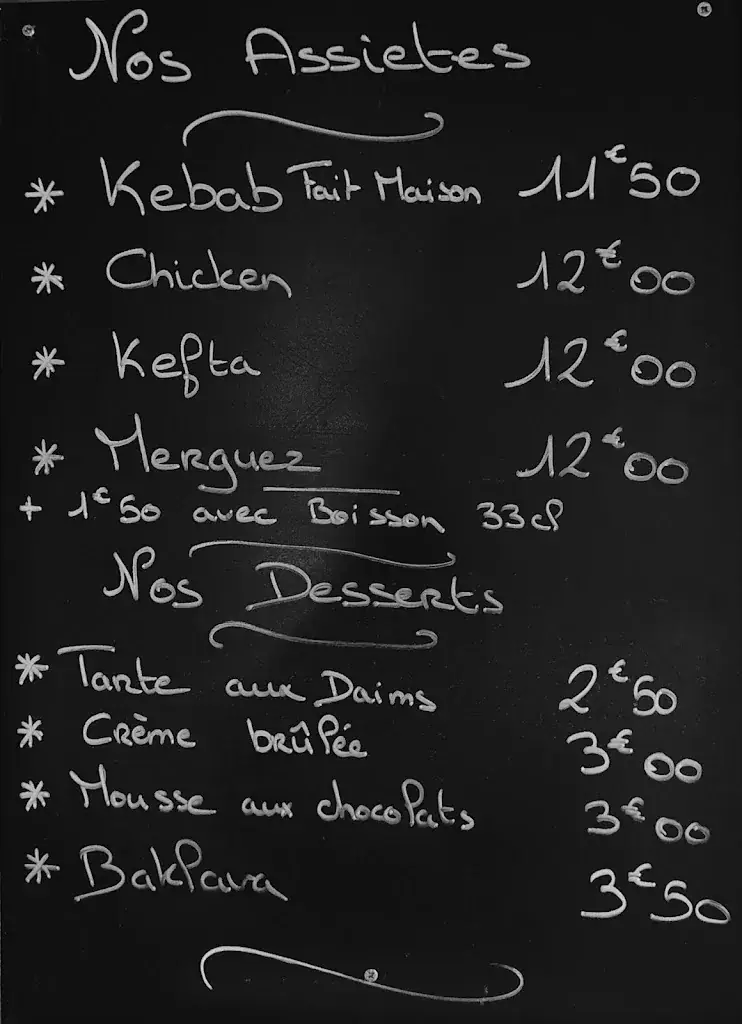 Nos Assietes
* Kebab Fait Maison 11€50
* Chicken 12€00
* Kefta 12€00
* Merguez 12€00
+ 1€50 avec Boisson 33cl
Nos Desserts
* Tarte aux Daims 2€50
* Crème brûlée 3€00
* Mousse aux chocolats 3€00
* Baklava 3€50